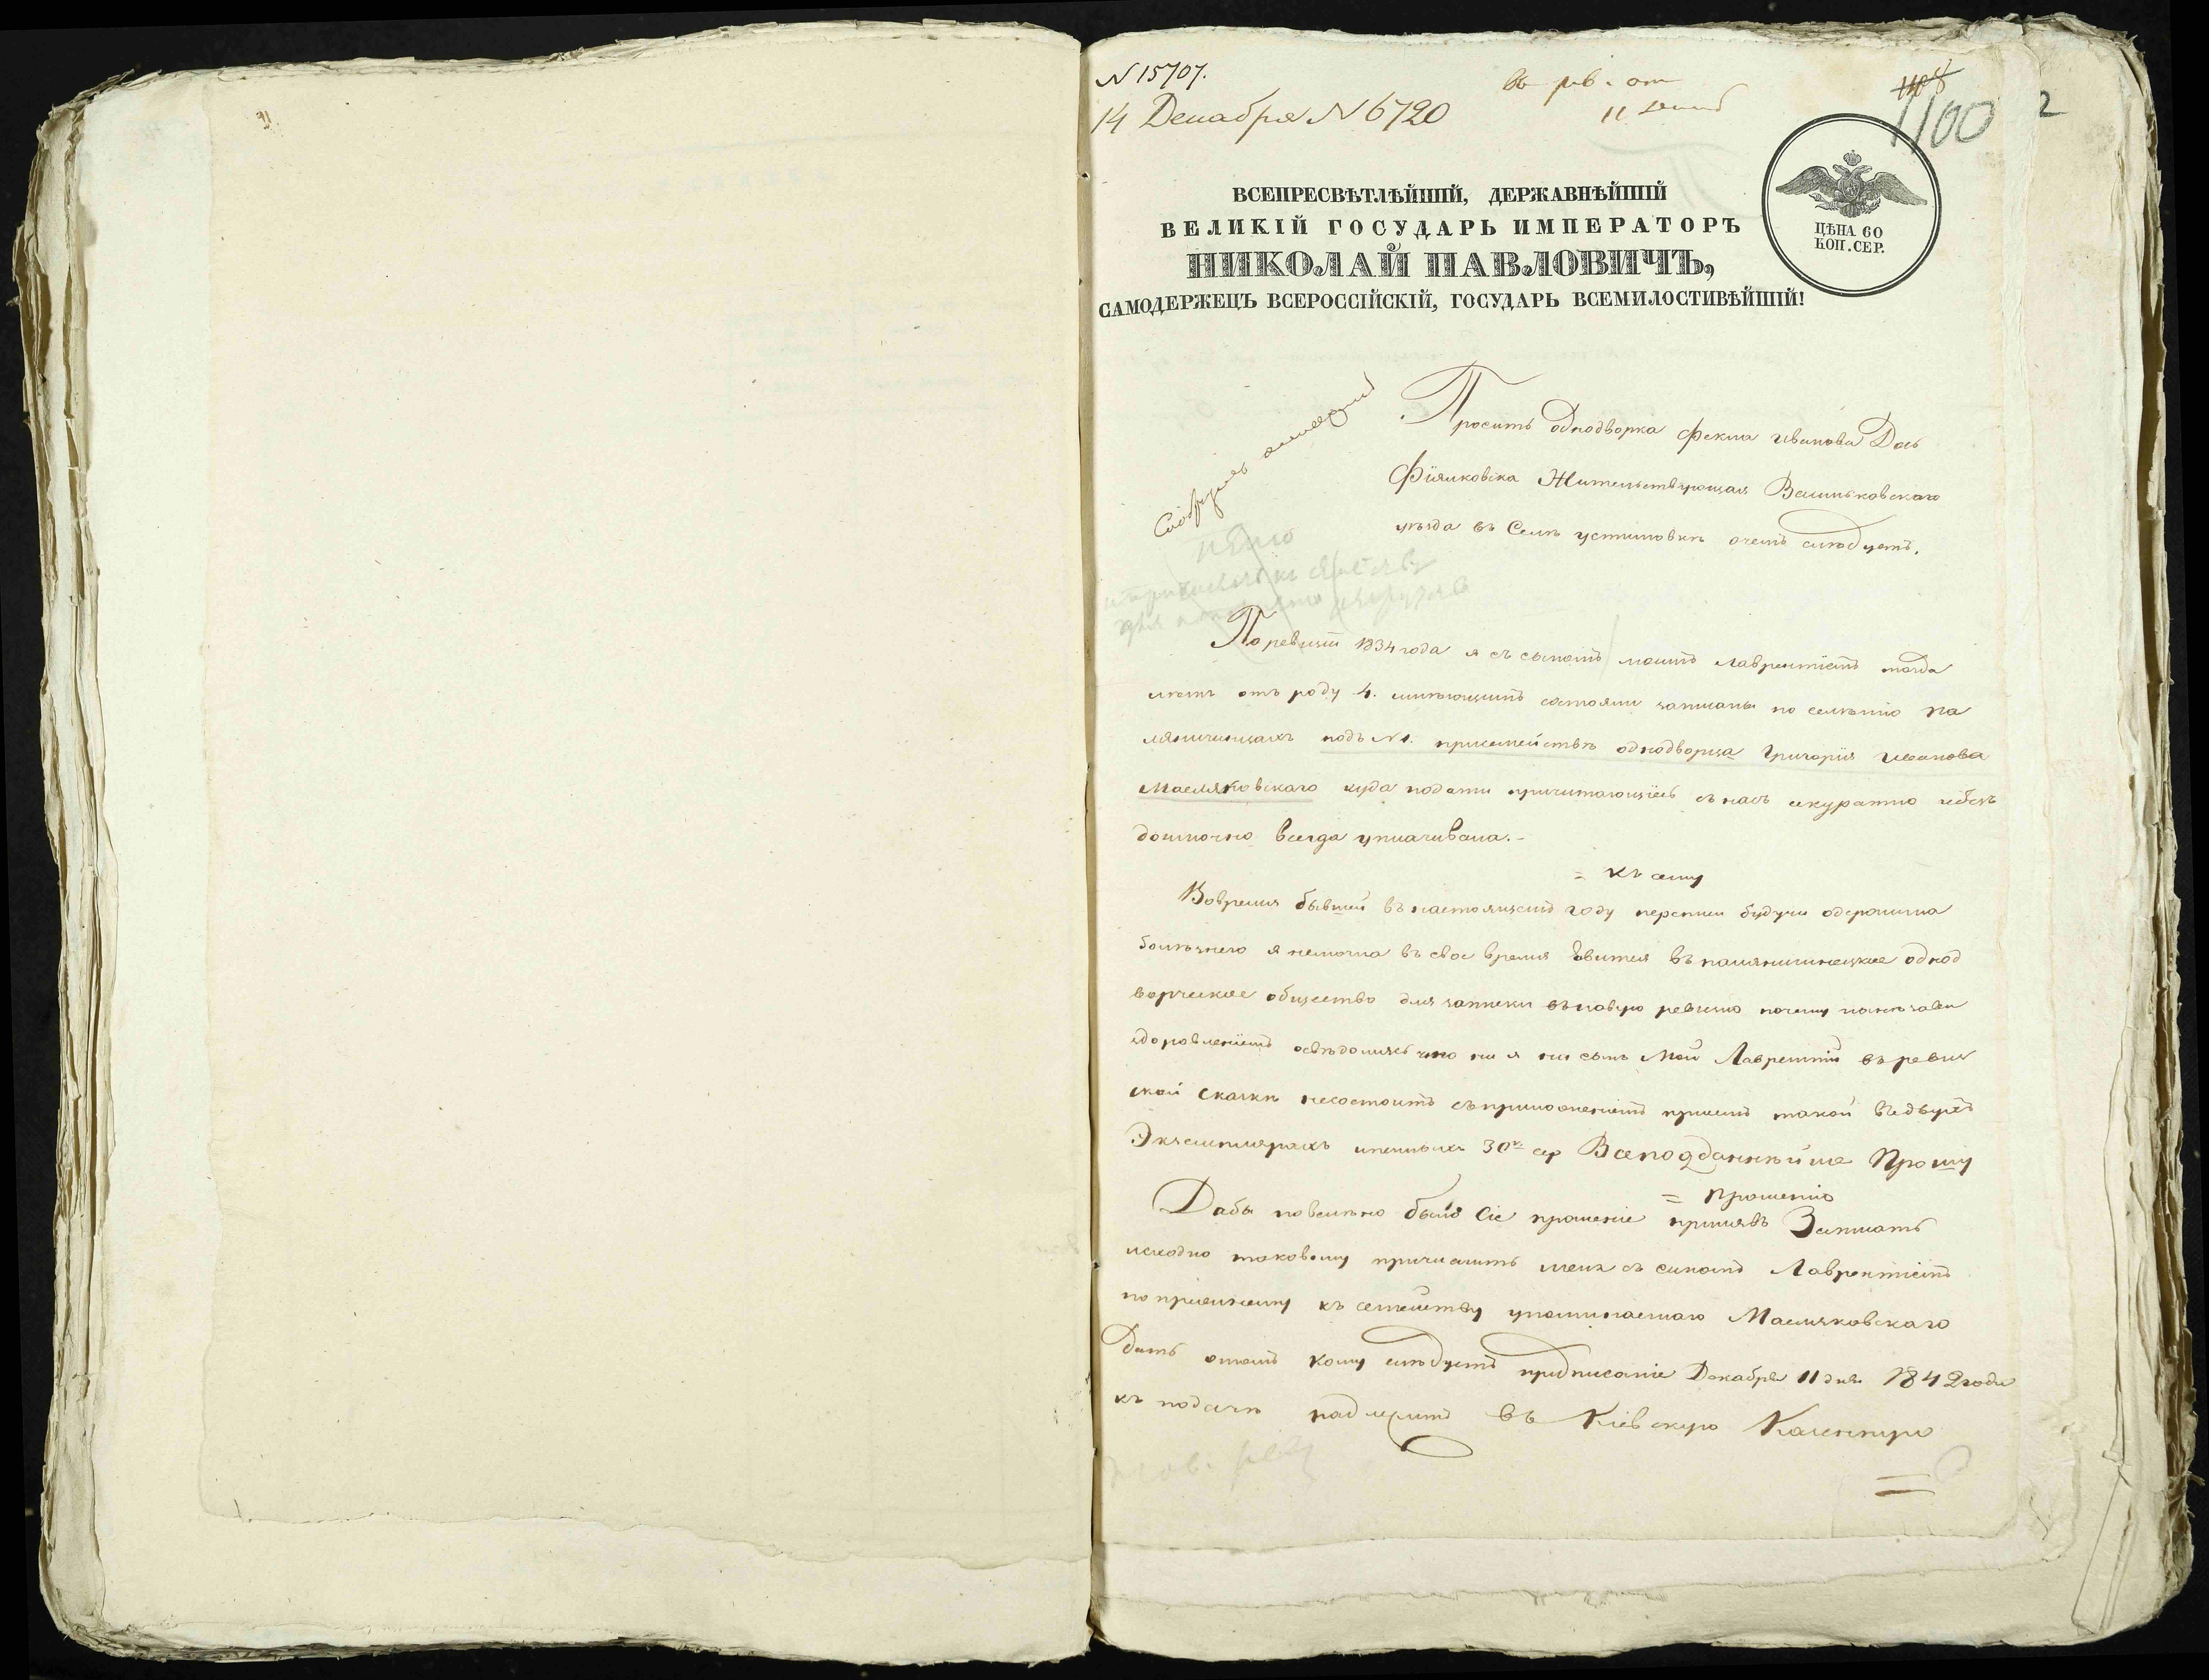 N 15707.
14 Декабря N 6720
11
1100
2
ВСЕПРЕСВѢТЛѢЙШІЙ, ДЕРЖАВНѢЙШІЙ
ВЕЛИКІЙ ГОСУДАРЬ ИМПЕРАТОРЪ
НИКОЛАЙ ПАВЛОВИЧЪ,
САМОДЕРЖЕЦЪ ВСЕРОССІЙСКІЙ, ГОСУДАРЬ ВСЕМИЛОСТИВѢЙШІЙ!
ЦѢНА 60
КОП. СЕР.
Проситъ однодворка Фекла Иванова Дочь
Жительствующая Васильковскаго
уѣзда въ Селѣ устимовкѣ очемъ слѣдуетъ.
Поревизіи 1834 года я съ сыномъ моимъ Лаврентіемъ тогда
лѣтъ отъ роду 4. имѣющимъ состоями записаны по селенію Па
ляничинцахъ подъ N 1. присемействѣ однодворца Григорія Иванова
Масляковскаго куда подати причитающіесь съ насъ акуратно ибезъ
доимочно всегда уплачивала.
= къ сему
Вовремя бывшей въ настоящемъ году переписи будучи одержима
болѣзнею я немогла въ свое время Явится въ паляничинецкое однод
ворческое общество для записки въ новую ревизію почему нынѣ завы
здоровленіемъ освѣдомясь что ни я ни сынъ Мой Лаврентій въ ревиз
ской Сказкѣ несостоитъ съприложеніемъ присемъ такой въ двухъ
Экземплярахъ 30 к сер Всеподданнѣйше Прошу
= Прошенію
Дабы повелѣно было Сіе прошеніе принявъ Записать
исходно таковому причислить меня съ сыномъ Лаврентіемъ
попрежнему къ семейству упоминаемаго Маслаковскаго
Дать отомъ кому слѣдуетъ предписаніе Декабря 11 дня 1842 года
къ подачѣ надлежитъ въ Кіевскую Казенную